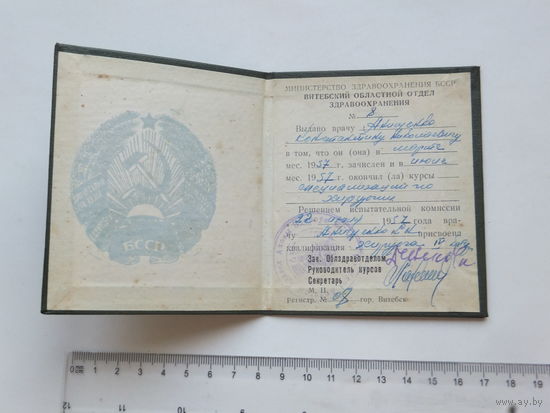 БССР
МИНИСТЕРСТВО ЗДРАВООХРАНЕНИЯ БССР
ВИТЕБСКИЙ ОБЛАСТНОЙ ОТДЕЛ
ЗДРАВООХРАНЕНИЯ
№ 8
Выдано врачу
Константину Николаевичу
в том, что он (она) в марте
мес. 1957 г. зачислен и в июне
мес. 1957 г. окончил (ла) курсы
специализации по
хирургии
Решением испытательной комиссии
1957 года вра-
чу присвоена
квалификация хирурга
Зав. Облздравотделом
Руководитель курсов
Секретарь
М. П.
Регистр. № 08 гор. Витебск
0 cm 1 2 3 4 5 6 7 8 9 10 11 12 13 14 15 16 17 18 19
12 11
www.ay.by